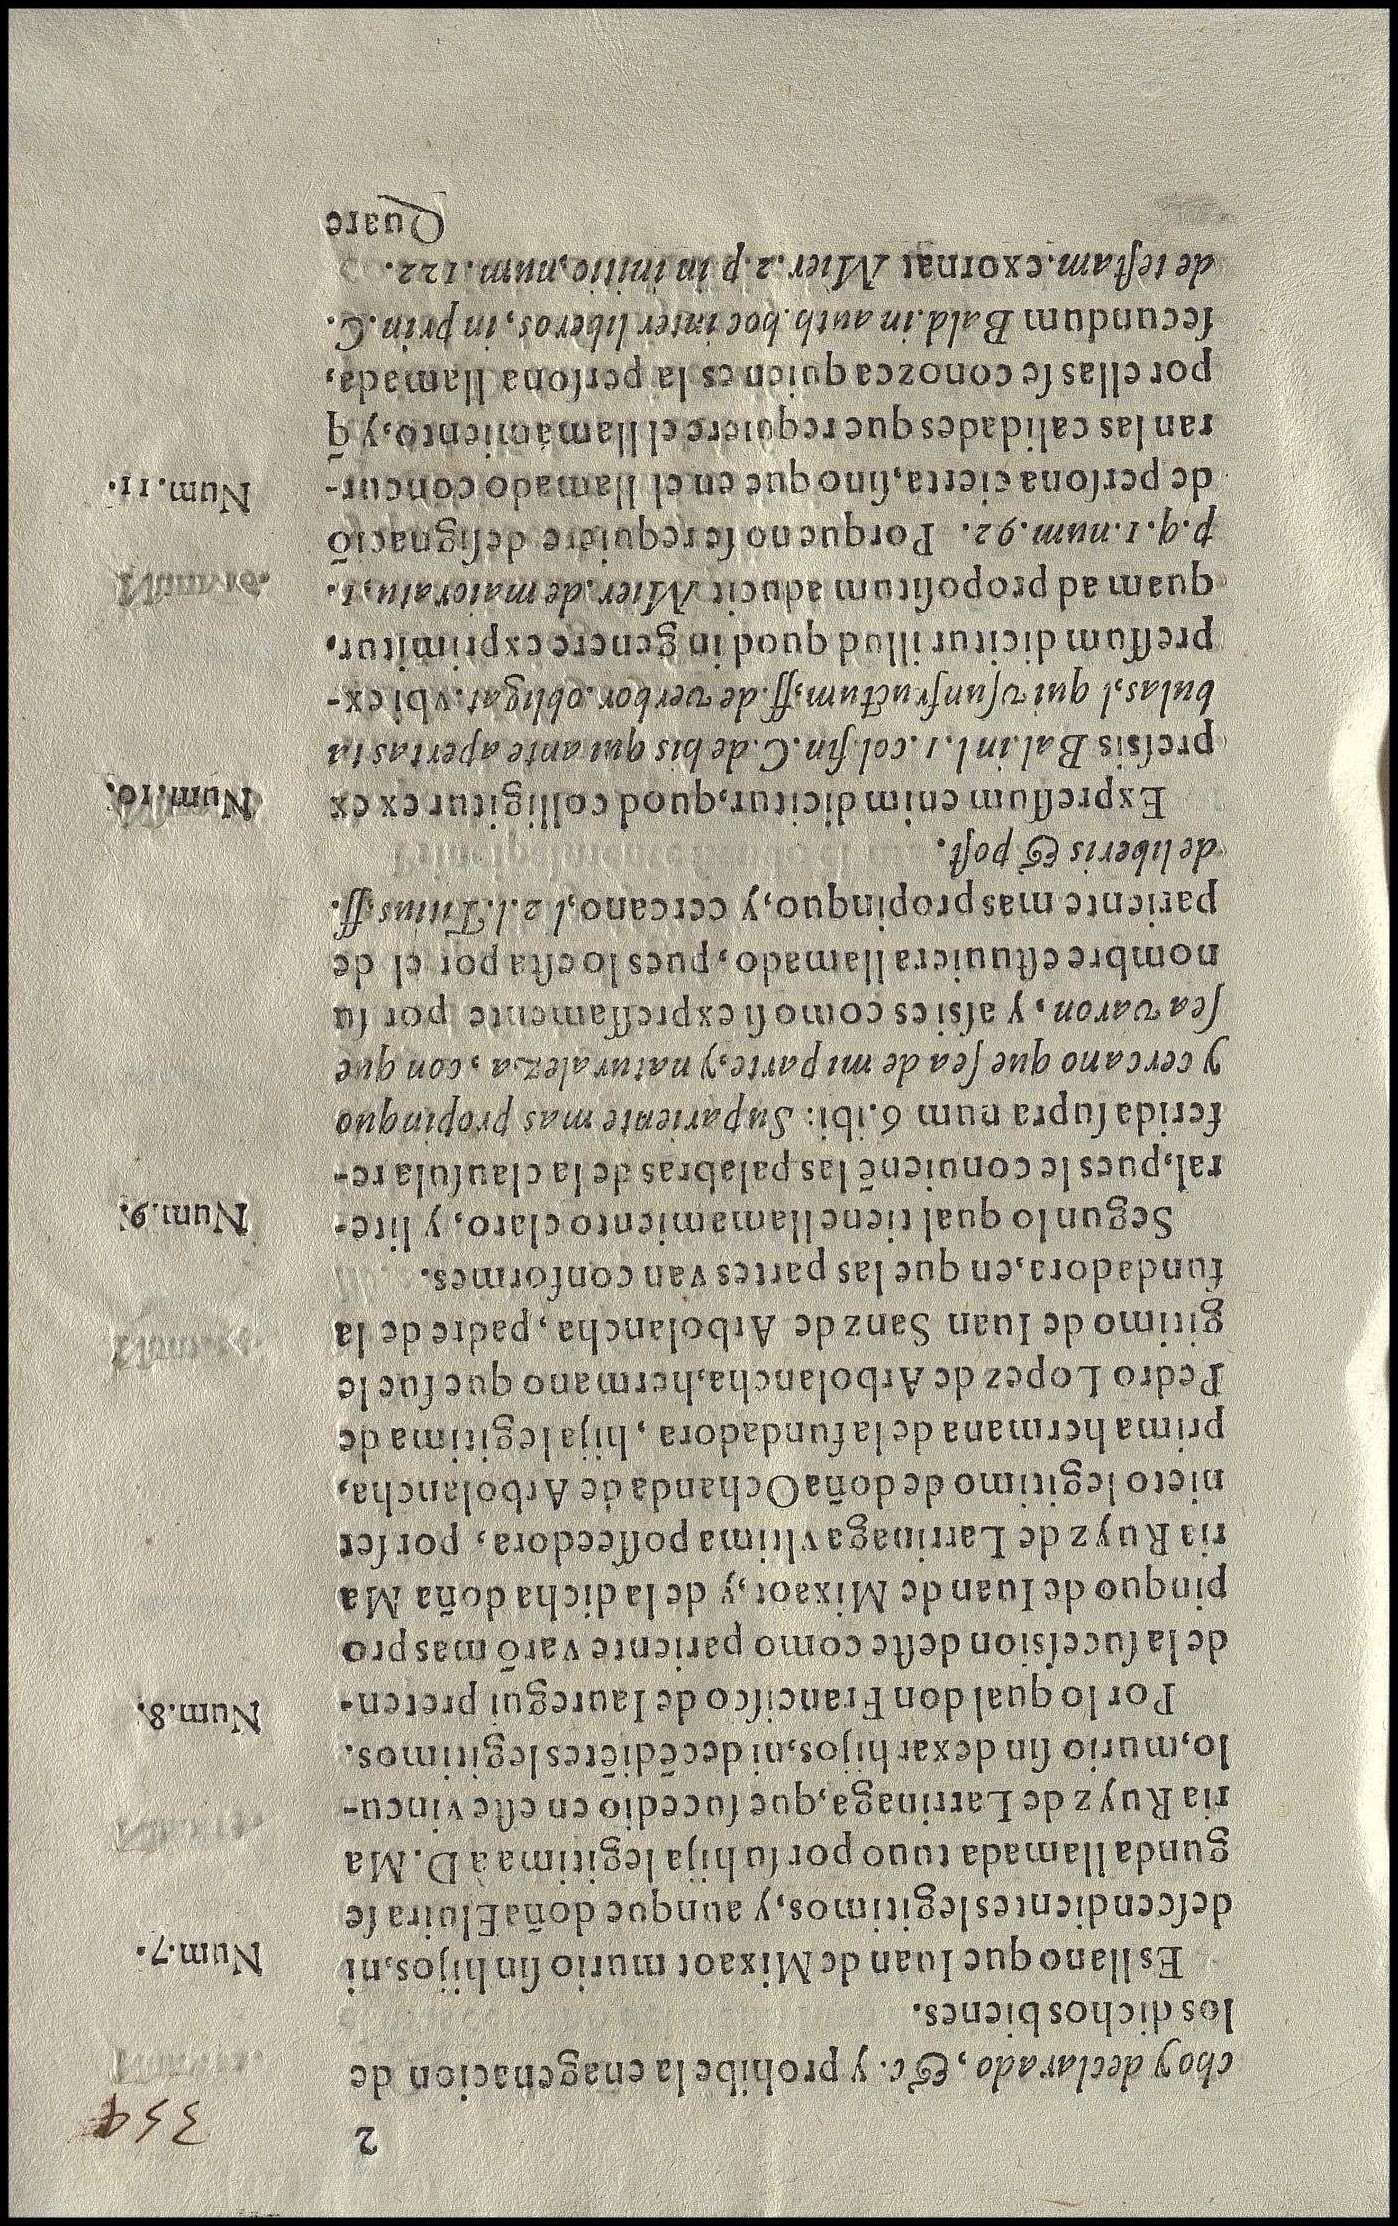 2
354
cho y declarado, &c. y prohibe la enagenacion de
los dichos bienes.
Es llano que Iuan de Mixaot murio sin hijos, ni
Num.7.
descendientes legitimos, y aunque doña Eluira se
gunda llamada tuuo por su hija legitima à D. Ma
ria Ruyz de Larrinaga, que sucedio en este vincu-
lo, murio sin dexar hijos, ni decēdiētes legitimos.
Por lo qual don Francisco de Iauregui preten-
Num.8.
de la sucession deste como pariente varō mas pro
pinquo de Iuan de Mixaot, y de la dicha doña Ma
ria Ruyz de Larrinaga vltima posseedora, por ser
nieto legitimo de doña Ochanda de Arbolancha,
prima hermana de la fundadora, hija legitima de
Pedro Lopez de Arbolancha, hermano que fue le
gitimo de Iuan Sanz de Arbolancha, padre de la
fundadora, en que las partes van conformes.
Segun lo qual tiene llamamiento claro, y lite-
Num.9.
ral, pues le conuienē las palabras de la clausula re-
ferida supra num 6. ibi: Su pariente mas propinquo
y cercano que sea de mi parte, y naturaleza, con que
sea varon, y assi es como si expressamente por su
nombre estuuiera llamado, pues lo esta por el de
pariente mas propinquo, y cercano, l. 2. l. Titius, ff.
de liberis & post.
Expressum enim dicitur, quod colligitur ex ex
Num.10.
pressis Bal. in l. 1. col. fin. C. de his qui ante apertas ta
bulas, l. qui vsunfructum, ff. de verbor. obligat. vbi ex-
pressum dicitur illud quod in genere exprimitur,
quam ad propositum aducit Mier. de maioratu, 1.
p. q. 1. num. 92. Porque no se requiere designaciō
de persona cierta, sino que en el llamado concur-
Num.11.
ran las calidades que requiere el llamamiento, y q̄
por ellas se conozca quien es la persona llamada,
secundum Bald. in auth. hoc inter liberos, in prin. C.
de testam. exornat Mier. 2. p in initio, num. 122.
Quare